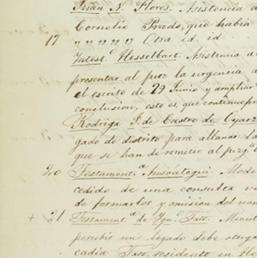 Juan N. Flores. Asistencia a
Cornelio Prado, que habia
17 " " " " " Otra id. id
Hesselbart. Asistencia a
presentar al juez la urgencia a
el escrito de 29 Junio y ampliar
conclusion, esto es, que continue pr
Rodrigo S. de Castro de
gado de distrito para allanar la
que se han de remitir al juzg
20 Testamentª Ansoategui. Mode
cedido de una consulta v
de formarlos y omision del nom
+ 21 Testamentª de Fco.
percibir un legado debe otorga
residente en